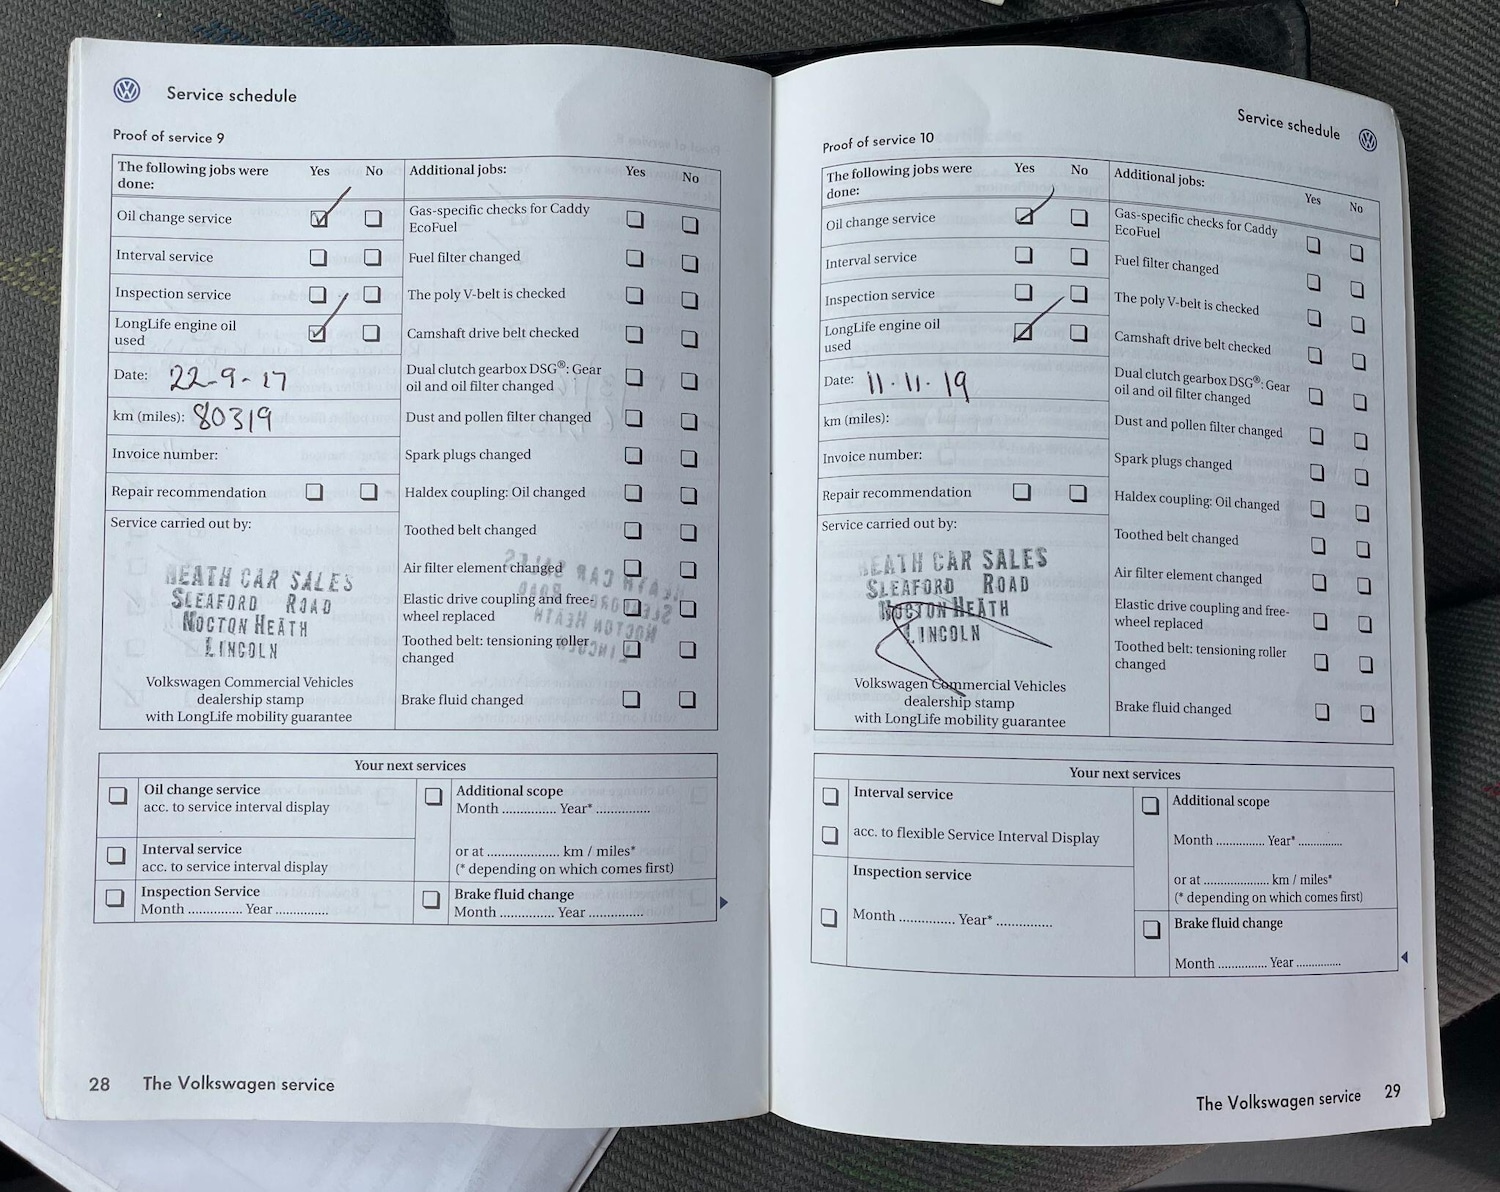 Service schedule
Proof of service 9
The following jobs were done: Yes No
Oil change service
Interval service
Inspection service
LongLife engine oil used
Date: 22-9-17
km (miles): 80319
Invoice number:
Repair recommendation
Service carried out by:
HEATH CAR SALES
SLEAFORD ROAD
NOCTON HEATH
LINCOLN
Volkswagen Commercial Vehicles
dealership stamp
with LongLife mobility guarantee
Additional jobs: Yes No
Gas-specific checks for Caddy
EcoFuel
Fuel filter changed
The poly V-belt is checked
Camshaft drive belt checked
Dual clutch gearbox DSG®: Gear
oil and oil filter changed
Dust and pollen filter changed
Spark plugs changed
Haldex coupling: Oil changed
Toothed belt changed
Air filter element changed
Elastic drive coupling and free-
wheel replaced
Toothed belt: tensioning roller
changed
Brake fluid changed
Your next services
Oil change service
acc. to service interval display
Interval service
acc. to service interval display
Inspection Service
Month ............... Year ...............
Additional scope
Month ............... Year* ...............
or at .................... km / miles*
(* depending on which comes first)
Brake fluid change
Month ............... Year ...............
28 The Volkswagen service
Service schedule
Proof of service 10
The following jobs were done: Yes No
Oil change service
Interval service
Inspection service
LongLife engine oil used
Date: 11.11.19
km (miles):
Invoice number:
Repair recommendation
Service carried out by:
HEATH CAR SALES
SLEAFORD ROAD
NOCTON HEATH
LINCOLN
Volkswagen Commercial Vehicles
dealership stamp
with LongLife mobility guarantee
Additional jobs: Yes No
Gas-specific checks for Caddy
EcoFuel
Fuel filter changed
The poly V-belt is checked
Camshaft drive belt checked
Dual clutch gearbox DSG®: Gear
oil and oil filter changed
Dust and pollen filter changed
Spark plugs changed
Haldex coupling: Oil changed
Toothed belt changed
Air filter element changed
Elastic drive coupling and free-
wheel replaced
Toothed belt: tensioning roller
changed
Brake fluid changed
Your next services
Interval service
acc. to flexible Service Interval Display
Inspection service
Month ............... Year* ...............
Additional scope
Month .............. Year* .............
or at .................... km / miles*
(* depending on which comes first)
Brake fluid change
Month .............. Year .............
The Volkswagen service 29